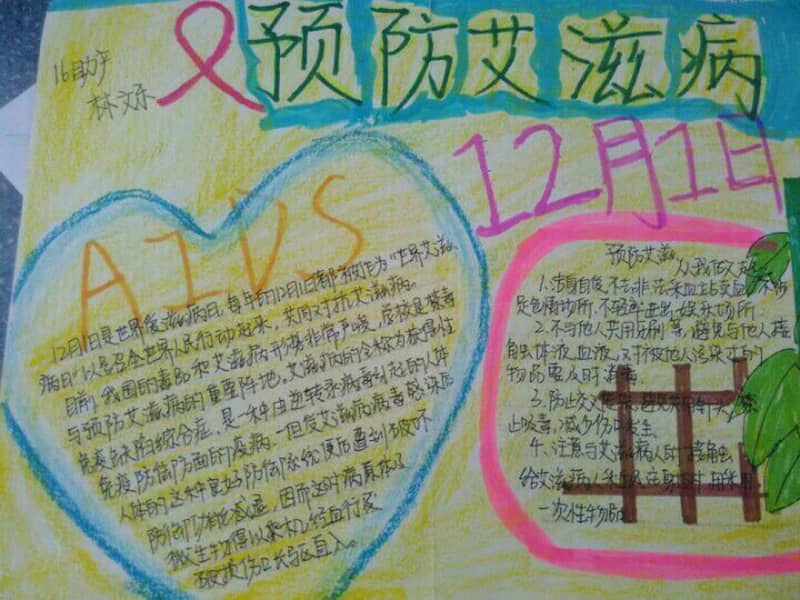 16助产
林文乐
预防艾滋病
12月1日
AIDS
12月1日是世界爱滋病日,每年的12月1日都被作为“世界艾滋
病日”以号召全世界人民行动起来,共同对抗艾滋病。
目前,我国的毒品和艾滋病形势非常严峻,
与预防艾滋病的重要阵地。艾滋病的全称为获得性
免疫缺陷综合症,是一种由逆转录病毒引起的人体
免疫防御方面的疾病,一但受艾滋病病毒感染后
人体的这种良好防御系统便后遭到破坏
防御功能减退,因而这时病原体及
微生物得以乘机经血行及
破损伤口长驱直入。
预防艾滋 从我做
1、洁身自爱,不去非法采血站 不涉
足色情场所,不轻率进出娱乐场所
2、不与他人共用牙刷等,避免与他人接
触体液、血液,对 被他人污染过的
物品要及时消毒
3、防止
止吸毒,减少伤口发生
4、注意与艾滋病人的接触
给艾滋病人
一次性物品